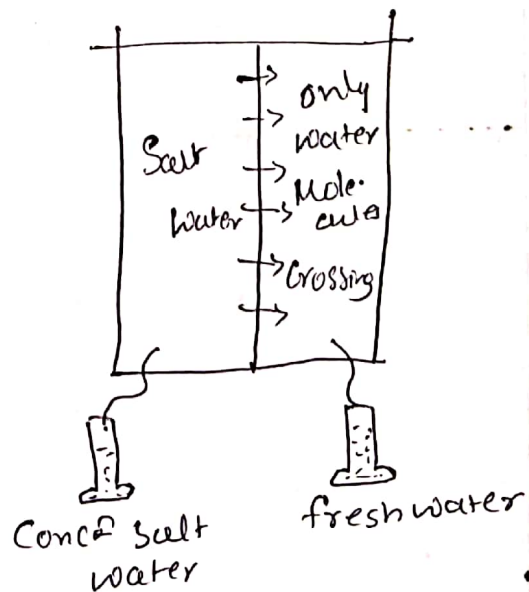 Salt
water
only
water
Mole-
cule
Crossing
Concd salt
water
fresh water